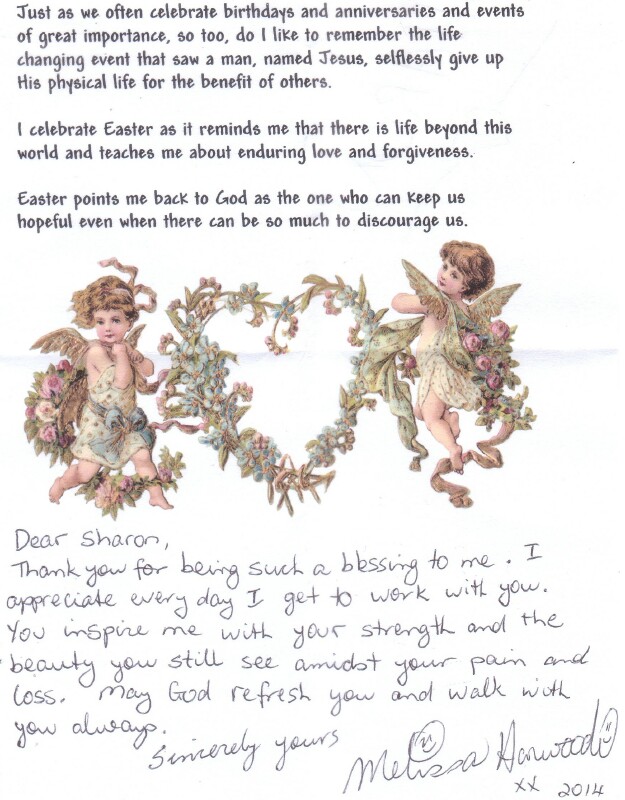 Just as we often celebrate birthdays and anniversaries and events
of great importance, so too, do I like to remember the life
changing event that saw a man, named Jesus, selflessly give up
His physical life for the benefit of others.
I celebrate Easter as it reminds me that there is life beyond this
world and teaches me about enduring love and forgiveness.
Easter points me back to God as the one who can keep us
hopeful even when there can be so much to discourage us.
Dear Sharon,
Thank you for being such a blessing to me. I
appreciate every day I get to work with you.
You inspire me with your strength and the
beauty you still see amidst your pain and
loss. May God refresh you and walk with
you always.
Sincerely yours
Melissa Harwood
xx 2014